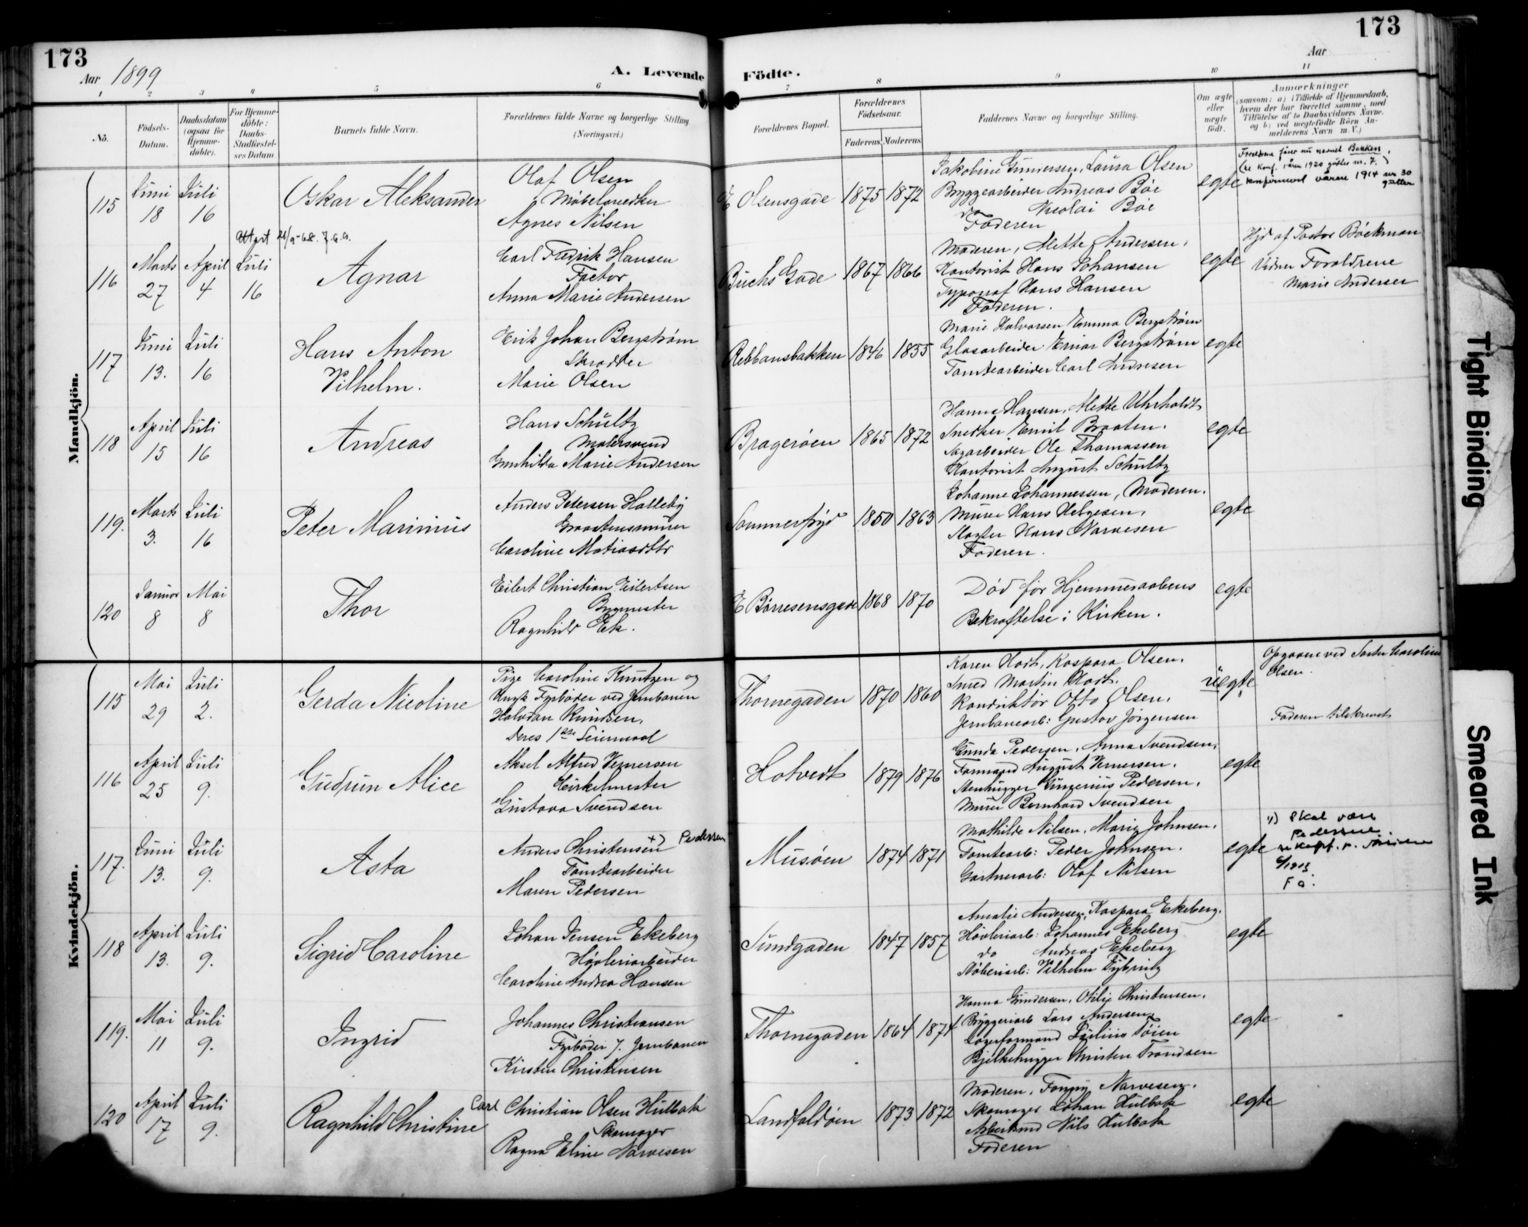 173
173
Aar 1899
A. Levende
Födte.
Aar
1 2 3 4 5 6 7 8 9 10 11
No.
Födsels-Datum.
Daabsdatum (ogsaa for Hjemme-döbte).
For Hjemme-döbte: Daabs-Stadfæstel-ses Datum
Barnets fulde Navn.
Forældrenes fulde Navne og borgerlige Stilling (Næringsvei).
Forældrenes Bopæl.
Forældrenes Födselsaar.
Faderens Moderens
Faddernes Navne og borgerlige Stilling.
Om ægte eller uægte födt.
Anmærkninger
Mandkjön.
115
Juni 18
Juli 16
Oskar Aleksander
Olaf Olsen
Möbelsnedker
Agnes Nilsen
E Olsensgade
1875 1872
Jakobine Gundersen, Laura Olsen
Bryggearbeider Andreas Böe
do Nicolai Böe
Faderen
egte
116
Marts 27
April 4
Juli 16
Agnar
Carl Fredrik Hansen
Factor
Anna Marie Andersen
Buchs Gade
1867 1866
Moderen, Mette Andersen,
Kontorist Hans Johansen
Typograf Hans Hansen
Faderen.
egte
Hjd af Pastor Böckman
Vidner Forældrene
Marie Andersen
117
Juni 13.
Juli 16
Hans Anton
Vilhelm.
Erik Johan Bergström
Skrædder
Marie Olsen
Rebbansbakken
1846 1855
Marie Halvorsen Emma Bergström
Glasarbeider Einar Bergström
Tomtearbeider Carl Andresen
egte
118
April 15
Juli 16
Andreas
Hans Schultz
Malersvend
Gunhilda Marie Andersen
Brageröen
1865 1872
Hanna Hansen, Mette Uhrholdt
Snedker Emil Braaten.
Sagarbeider Ole Thomassen
Kontorist August Schultz
egte
119.
Marts 3.
Juli 16
Peter Marinius
Anders Petersen Halleby
Graastensmurer
Caroline Mathiasdttr
Sommerfryd
1850 1863
Johanne Johannessen, Moderen.
Murer Hans Helgesen,
Slagter Hans Narvesen
Faderen.
egte
120
Januar 8
Mai 8
Thor
Eilert Christian Eilertsen
Bygmester
Ragnhild Eek.
E Börresensgade
1868 1870
Död för Hjemmedaabens
Bekræftelse i Kirken.
egte
Kvindekjön.
115
Mai 29
Juli 2.
Gerda Nicoline
Pige Caroline Knutzen og
Ungk. Fyrböder ved Jernbanen
Halvdan Knudsen,
Deres 1ste Leiermaal
Thornegaden
1870 1860
Karen Hort, Kaspara Olsen.
Smed Martin Hort.
Konduktör Otto Olsen,
Jernbanearb: Gustav Jörgensen
uegte
Opgaave ved
Olsen.
Faderen tilskrevet
116
April 25
Juli 9.
Gudrun Alice
Aksel Alfred Vernersen
Cirkelmester
Gustava Svendsen
Hotvedt
1879 1876
Gunda Pedersen, Anna Svendsen,
Formand August Vernersen.
Stenhugger Ingenius Pedersen,
Murer Bernhard Svendsen
egte
117.
Juni 13.
Juli 9.
Asta
Anders Christensen +) Pedersen
Tomtearbeider
Maren Pedersen
Musöen
1874 1871
Mathilde Nilsen, Marie Johnsen,
Tomtearb: Peder Johnsen.
Gartnerarb: Olaf Nilsen
egte
Skal være
Pedersen
118
April 13.
Juli 9.
Sigrid Caroline
Johan Jensen Ekeberg
Hövleriarbeider
Caroline Andrea Hansen
Sundgaden
1847 1857
Amalie Andersen, Kaspara Ekeberg.
Hövleriarb: Johannes Ekeberg
do Andreas Ekeberg
Vilhelm Fybring
egte
119.
Mai 11
Juli 9.
Ingrid
Johannes Christiansen
Fyrböder v. Jernbanen
Kirsten Christensen
Thornegaden
1864 1874
Hanna Gundersen, Otilie Christensen.
Bryggeriarb Lars Andersen
Lagerformand
Bjelkehugger Christen Trondsen
egte
120
April 17
Juli 9.
Ragnhild Christine
Carl Christian Olsen Hulbak
Skomager
Ragna Eline Narvesen
Landfaldöen
1873 1872
Moderen, Fanny Narvesen.
Skomager Johan Hulbak
Nils Hulbak
Faderen
egte
Tight Binding
Smeared Ink